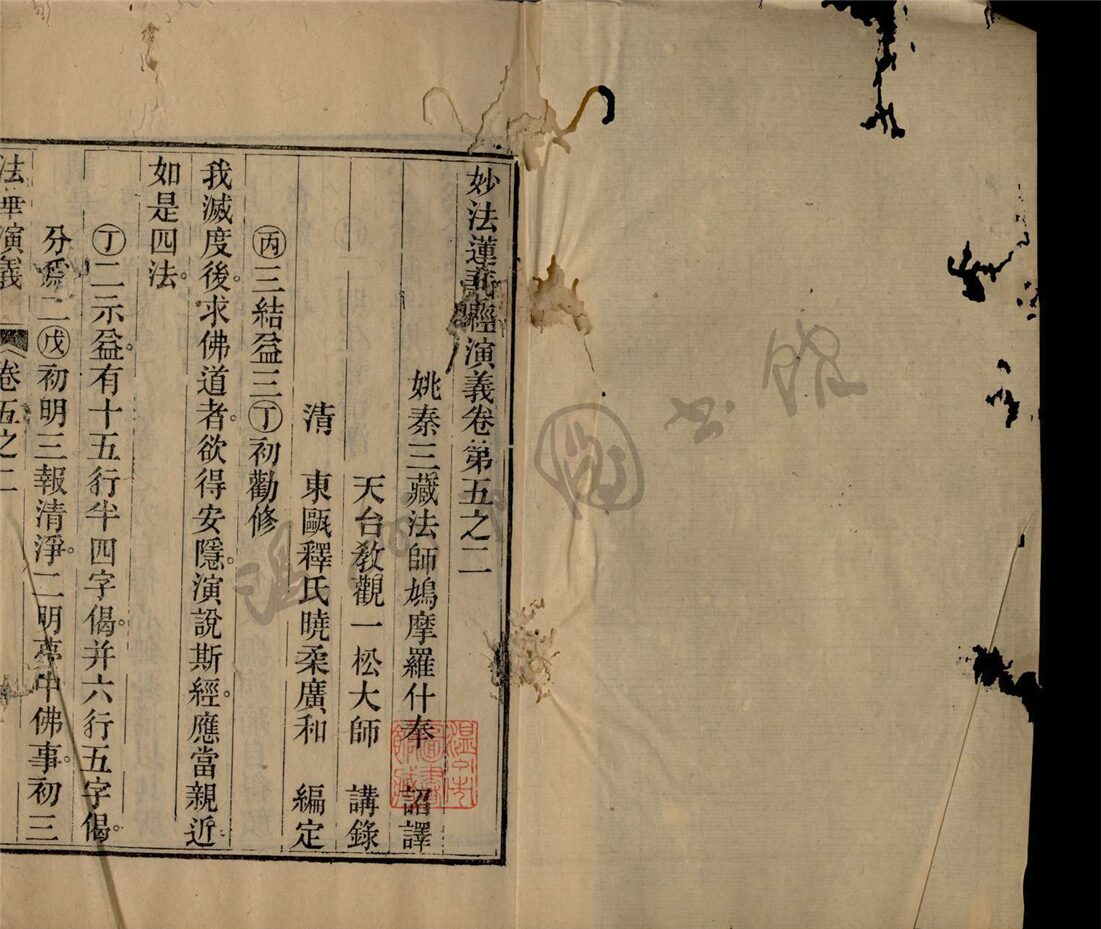 妙法蓮華經演義卷第五之二
姚秦三藏法師鳩摩羅什奉 詔譯
天台教觀一松大師 講錄
清 東甌釋氏曉柔廣和 編定
㊅三結益三㊀初勸修
我滅度後。求佛道者。欲得安隱。演說斯經。應當親近
如是四法。
丁二示益。有十五行半四字偈。并六行五字偈。
分爲二戊初明三報清淨。二明夢中佛事。初三
法華演義 卷五之二
溫州市圖書館藏